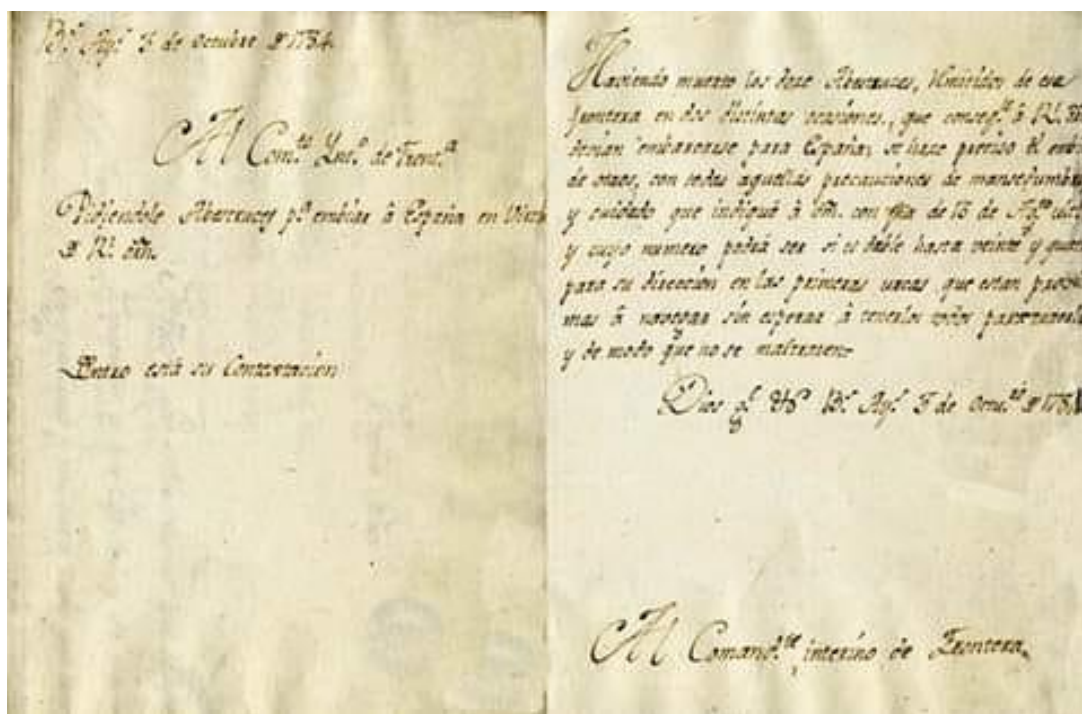 B.s Ay.s 3 de Octubre de 1784.
Al Com.te Ynt.o de Front.ra
Pidiendole Abestruces p.a embiar à España en
de R.l orn.
está su Contextación
Haviendo muerto los doze Abestruces, remitidos de esa
frontera en dos distintas ocasiones, que conseq.te à R.l orn
devian embarcarse para España, se hace preciso el
de otros, con todas aquellas precauciones de mansedumbre
y cuidado que indiqué à Vm. con de 13 de
y cuyo numero podrá ser si es dable hasta veinte y
para su dirección en las primeras urcas que estan
mas à navegar sin esperar à tenerlos todos
y de modo que no se maltraten
Dios g.e B.s Ay.s 3 de de
Al Comand.te interino de Frontera